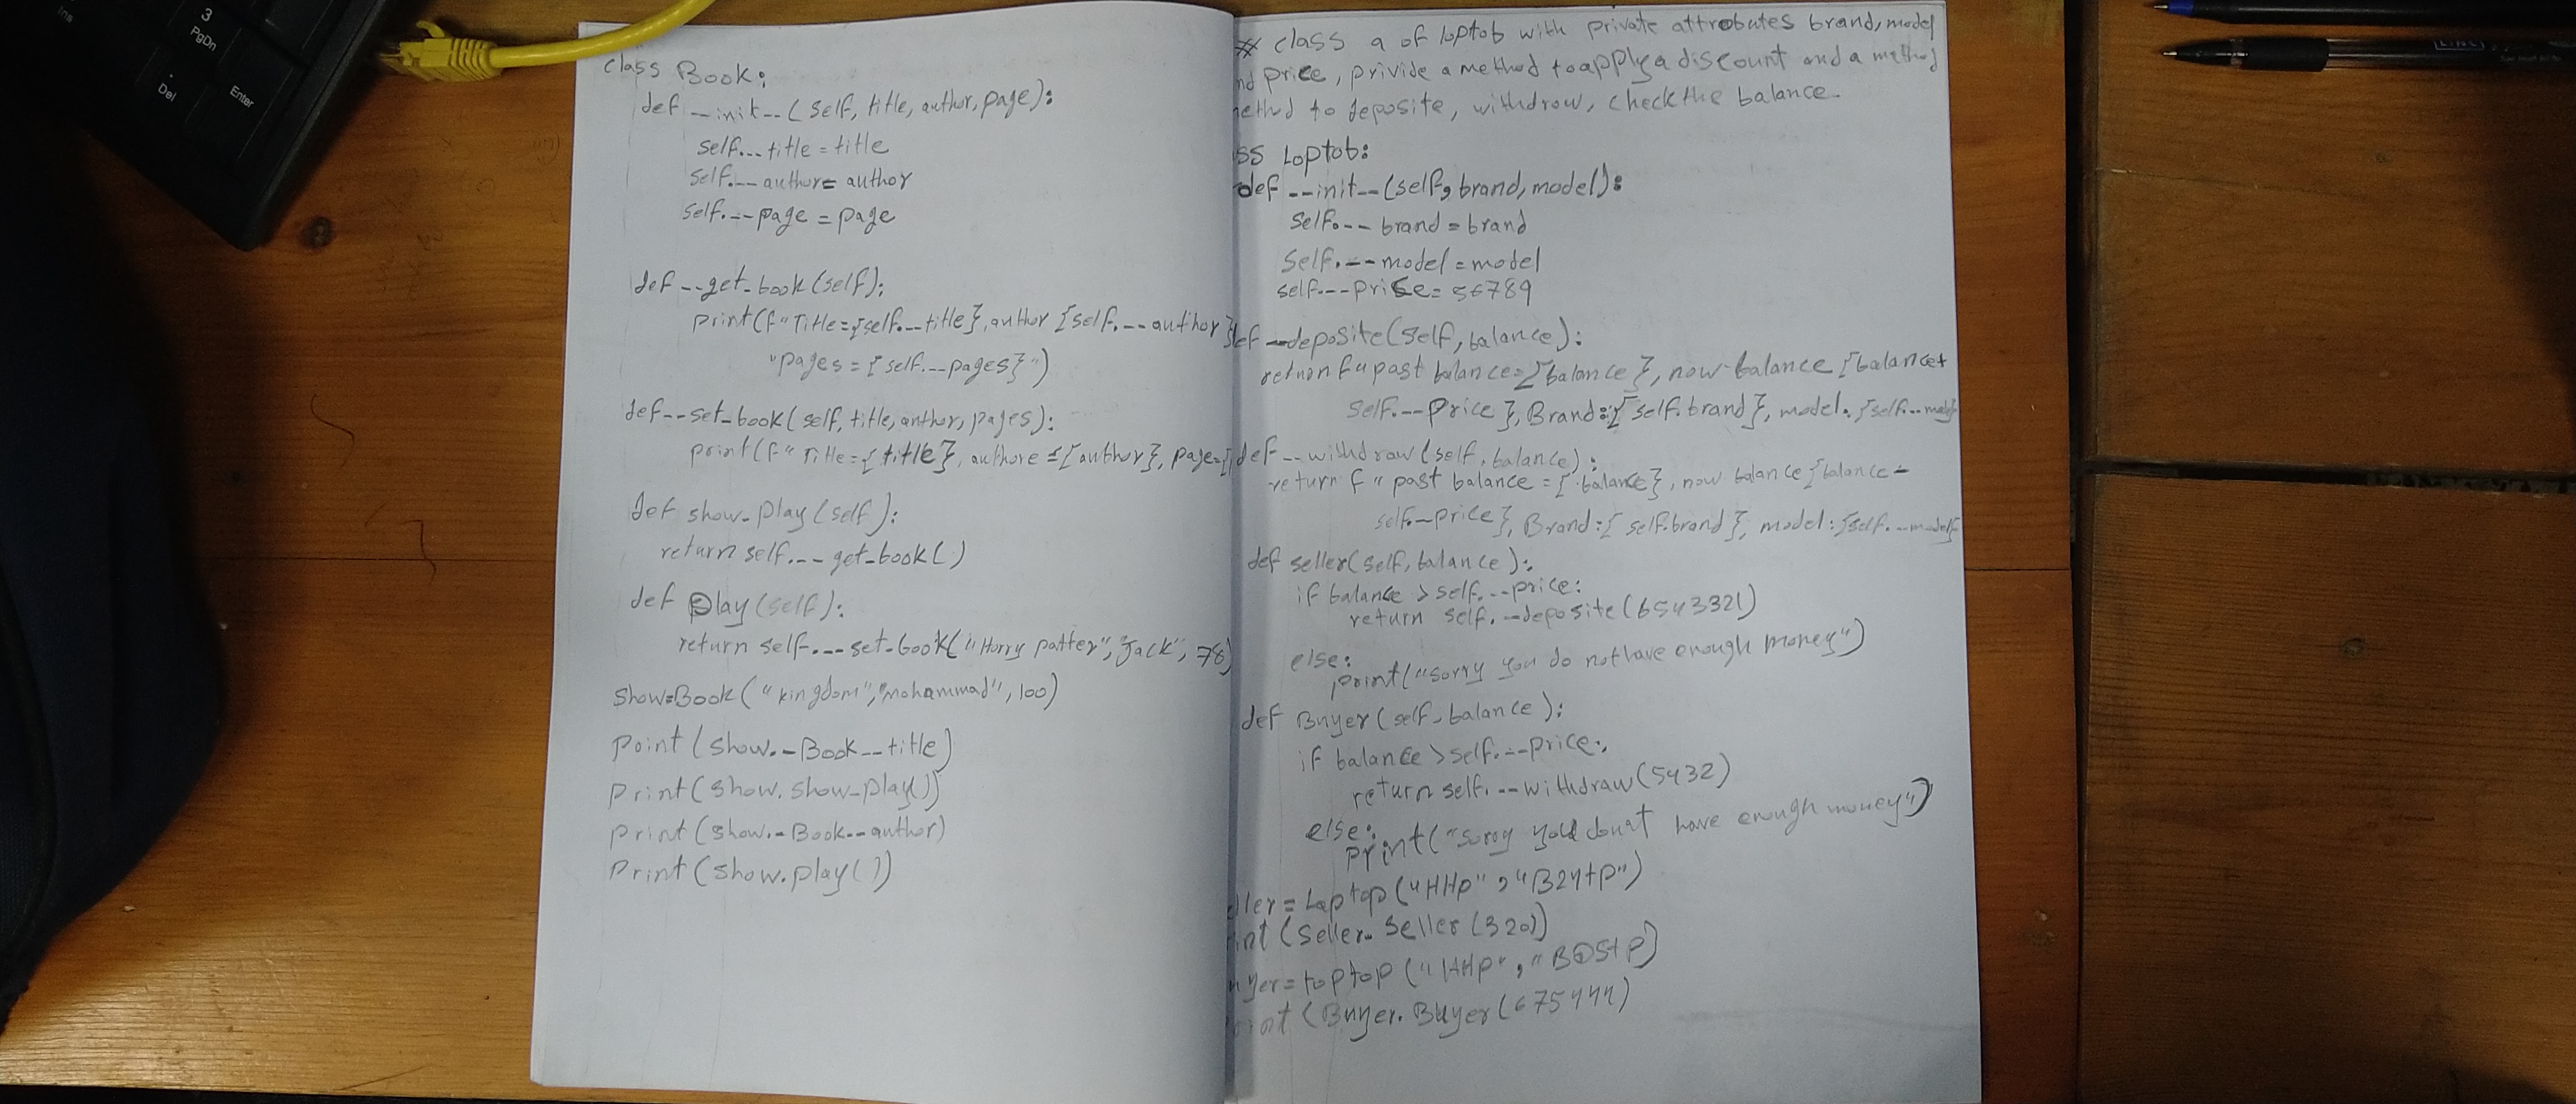 class Book:
def __init__(self, title, author, page):
self.__title = title
self.__author = author
self.__page = page
def __get_book(self):
print(f"Title={self.__title}, author {self.__author}
"pages = {self.__pages}")
def __set_book(self, title, author, pages):
print(f"Title={title}, authore={author}, page={
def show_play(self):
return self.__get_book()
def play(self):
return self.__set_book("Hurry patter", "Jack", 78)
show=Book("kingdom", "mohammad", 100)
Point(show._Book__title)
print(show.show_play())
print(show._Book__author)
print(show.play())
# class a of loptob with private attrobutes brand, model
nd price, privide a method to apply a discount and a method
nethod to deposite, withdrow, check the balance.
ss Loptob:
def __init__(self, brand, model):
self.__brand = brand
self.__model = model
self.__price = 56789
def __deposite(self, balance):
return f"past balance={balance}, now-balance{balance+
self.__price}, Brand:{self.brand}, model:{self.__
def __withdrow(self, balance):
return f"past balance={balance}, now balance{balance-
self.__price}, Brand:{self.brand}, model:{self.__
def seller(self, balance):
if balance > self.__price:
return self.__deposite(6543321)
else:
print("sorry you do not have enough money")
def Buyer(self, balance):
if balance > self.__price:
return self.__withdraw(5432)
else:
print("sorry you donat have enough money")
ller = Laptop("HHp", "B24tp")
int(seller.seller(320)
uyer = laptop("HHp", "BOStp)
rint(Buyer.Buyer(675444)
Ins
Del
3
PgDn
Enter